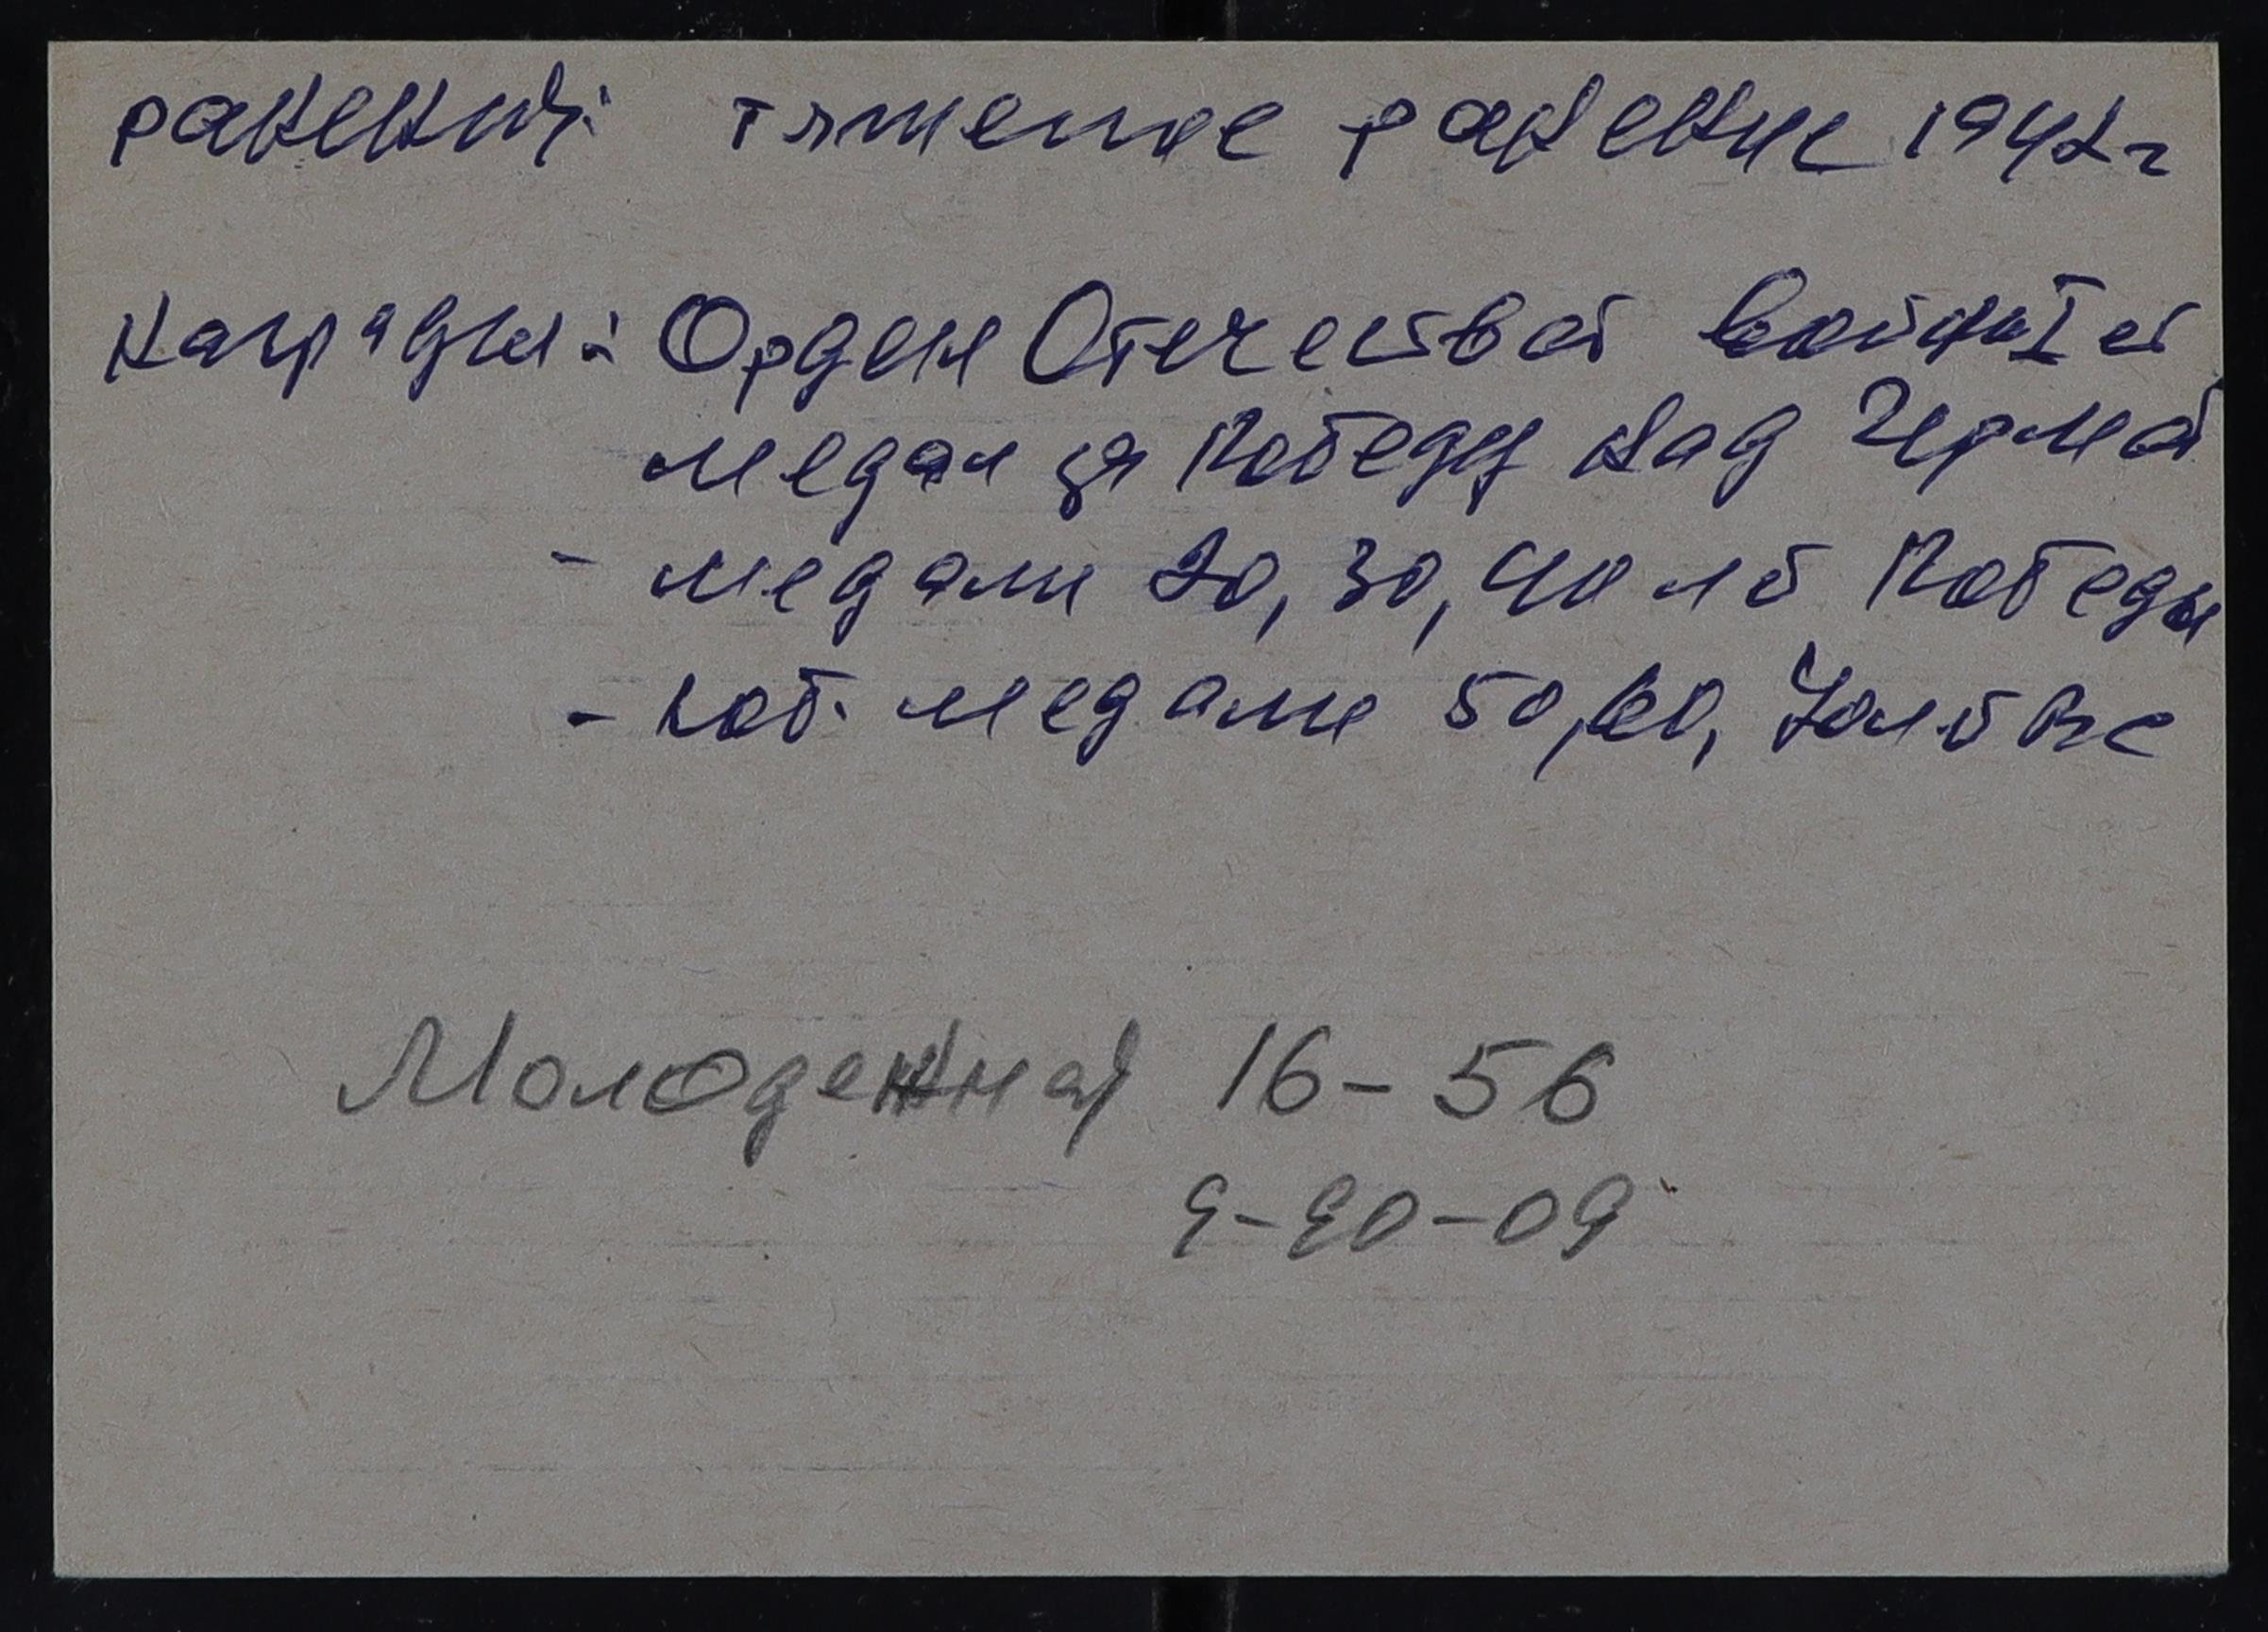 ранений: тяжелое ранение 1942 г
награды: Орден Отечествой войны I ст
медал за Победу над Герма
- медали 20, 30, 40 лет Победы
- юб. медали 50, 60, 70 лет ВС
Молодежная 16-56
9-90-09